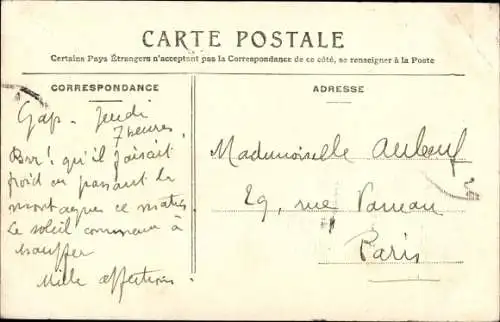 CARTE POSTALE
Certains Pays Étrangers n'acceptant pas la Correspondance de ce côté, se renseigner à la Poste
CORRESPONDANCE
Gap - Jeudi
7 heures.
Brr! qu'il faisait
froid en passant les
montagnes ce matin.
Le soleil commence à
chauffer
Mille affections.
ADRESSE
Mademoiselle Aubeuf
29, rue Vaneau
Paris